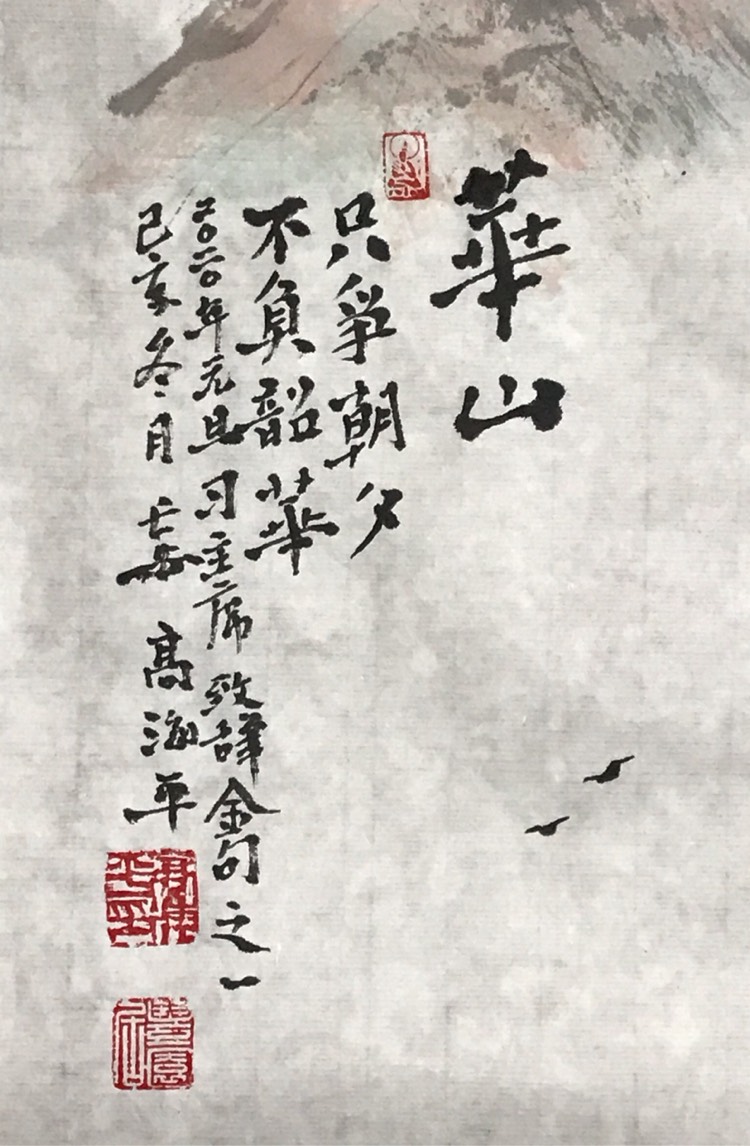 華山
只爭朝夕
不負韶華
二〇二〇年元旦习主席致辞金句之一
己亥冬月 高海平